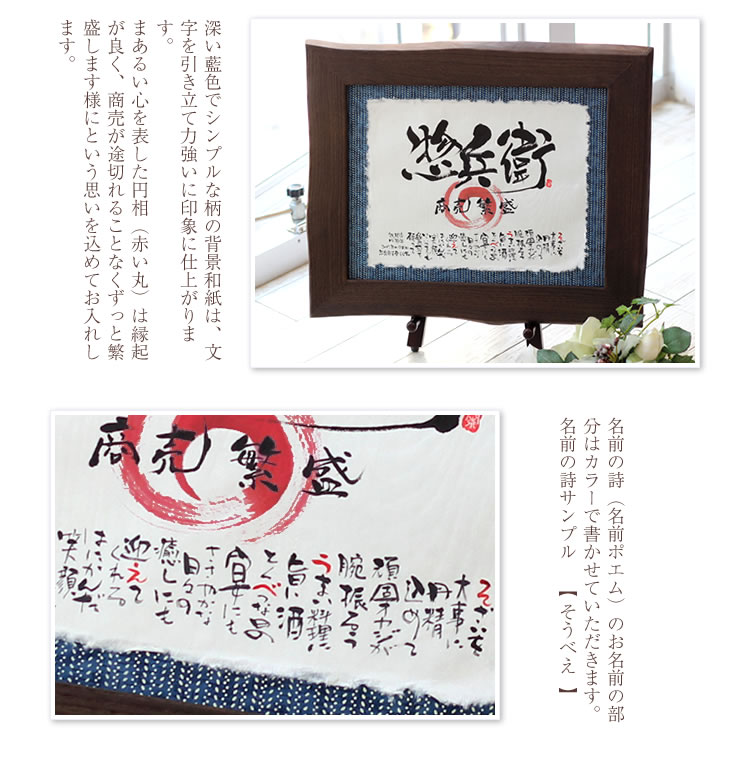 惣兵衛
商売繁盛
深い藍色でシンプルな柄の背景和紙は、文
字を引き立て力強いに印象に仕上がりま
す。
まあるい心を表した円相（赤い丸）は縁起
が良く、商売が途切れることなくずっと繁
盛します様にという思いを込めてお入れし
ます。
名前の詩（名前ポエム）のお名前の部
分はカラーで書かせていただきます。
名前の詩サンプル 【そうべえ】
商売繁盛
そざいを
大事に
丹精
込めて
頑固オヤジが
腕振るう
うまい料理に
旨い酒
とくべつな日の
宴にも
ささやかな
日々の
癒しにも
迎えて
くれる
はにかんだ
笑顔